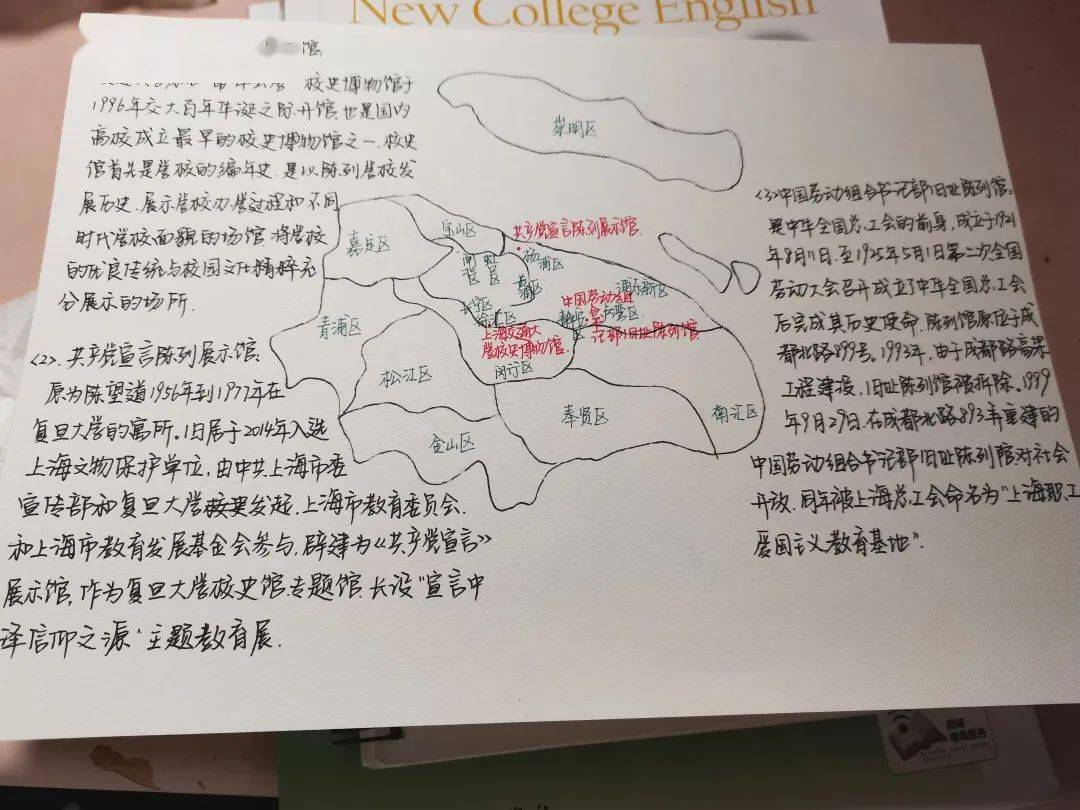 New College English
馆:
校史博物馆于
1996年交大百年华诞之际开馆,也是国内
高校成立最早的校史博物馆之一.校史
馆首先是学校的编年史.是以陈列学校发
展历史.展示学校办学过程和不同
时代学校面貌的场馆.将学校
的优良传统与校园文化精粹充
分展示的场所.
<2>.共产党宣言陈列展示馆:
原为陈望道1956年到1977年在
复旦大学的寓所。旧居于2014年入选
上海文物保护单位,由中共上海市委
宣传部和复旦大学发起.上海市教育委员会.
和上海市教育发展基金会参与,辟建为《共产党宣言》
展示馆,作为复旦大学校史馆.专题馆.长设"宣言中
译信仰之源"主题教育展.
崇明区
宝山区
嘉定区
共产党宣言陈列展示馆.
杨浦区
闸北区
虹
黄浦区
浦东新区
长宁区
徐汇区
静安区
卢湾区
中国劳动组
合
记部旧址陈列馆.
上海交通大
学校史博物馆.
闵行区
青浦区
松江区
金山区
奉贤区
南汇区
<3>中国劳动组合书记部旧址陈列馆:
是中华全国总工会的前身,成立于1921
年8月11日.至1925年5月1日第二次全国
劳动大会召开成立了中华全国总工会
后完成其历史使命.陈列馆原位于成
都北路899号。1993年,由于成都路高架
工程建设,旧址陈列馆被拆除。1999
年9月29日.在成都北路893弄重建的
中国劳动组合书记部旧址陈列馆对社会
开放.同年被上海总工会命名为"上海职工
爱国主义教育基地".
网络
增值服务